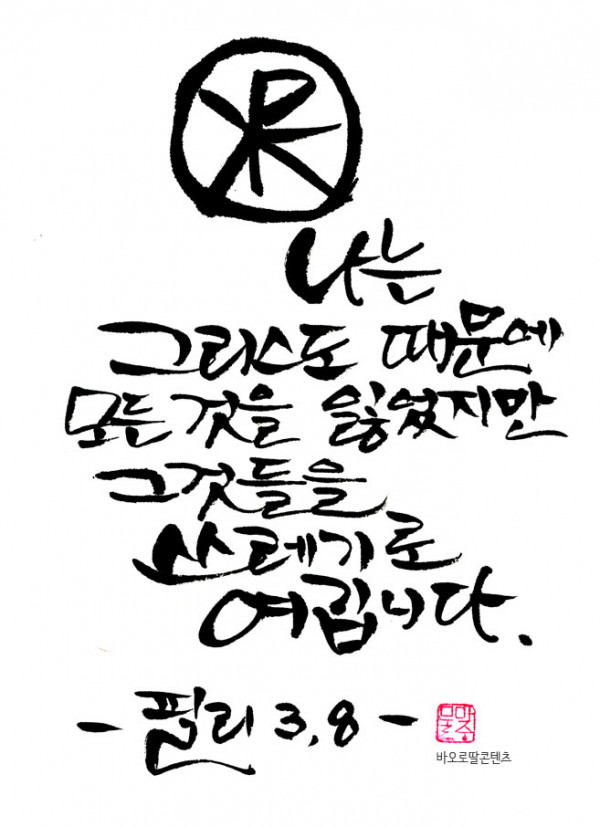 나는
그리스도 때문에
모든 것을 잃었지만
그것들을
쓰레기로
여깁니다.
- 필리 3,8 -
바오로딸콘텐츠